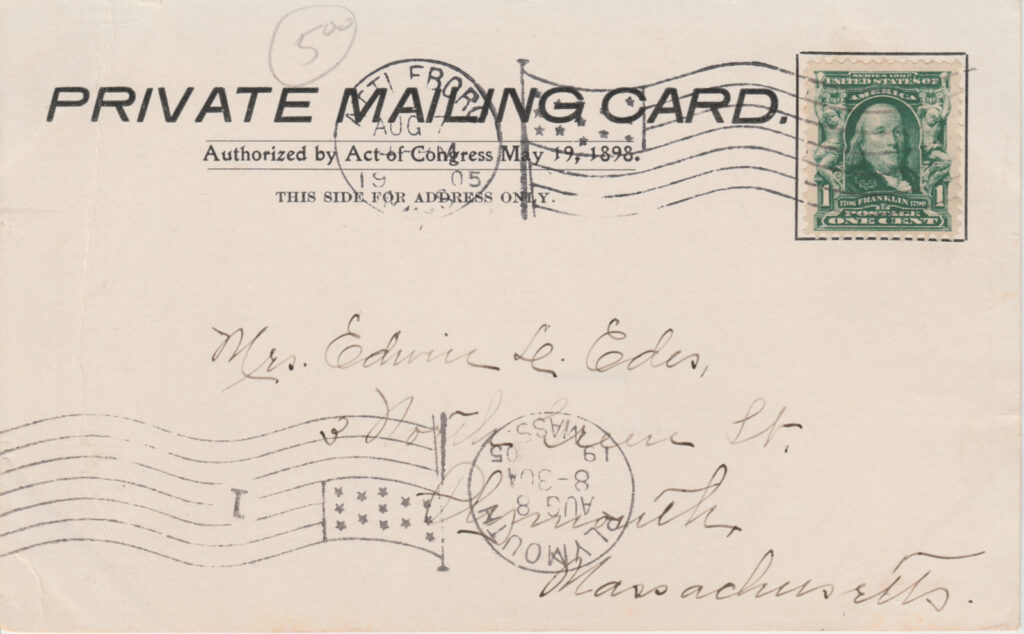 5 00
PRIVATE MAILING CARD.
Authorized by Act of Congress May 19, 1898.
THIS SIDE FOR ADDRESS ONLY.
ATTLEBORO
AUG 7
19 05
SERIES 1902
UNITED STATES OF
AMERICA
1 1706 FRANKLIN 1790 1
POSTAGE
ONE CENT
Mrs. Edwin L. Edes,
North Green St.
Plymouth,
Massachusetts.
PLYMOUTH
AUG 8
8-30A
19 05
MASS
1